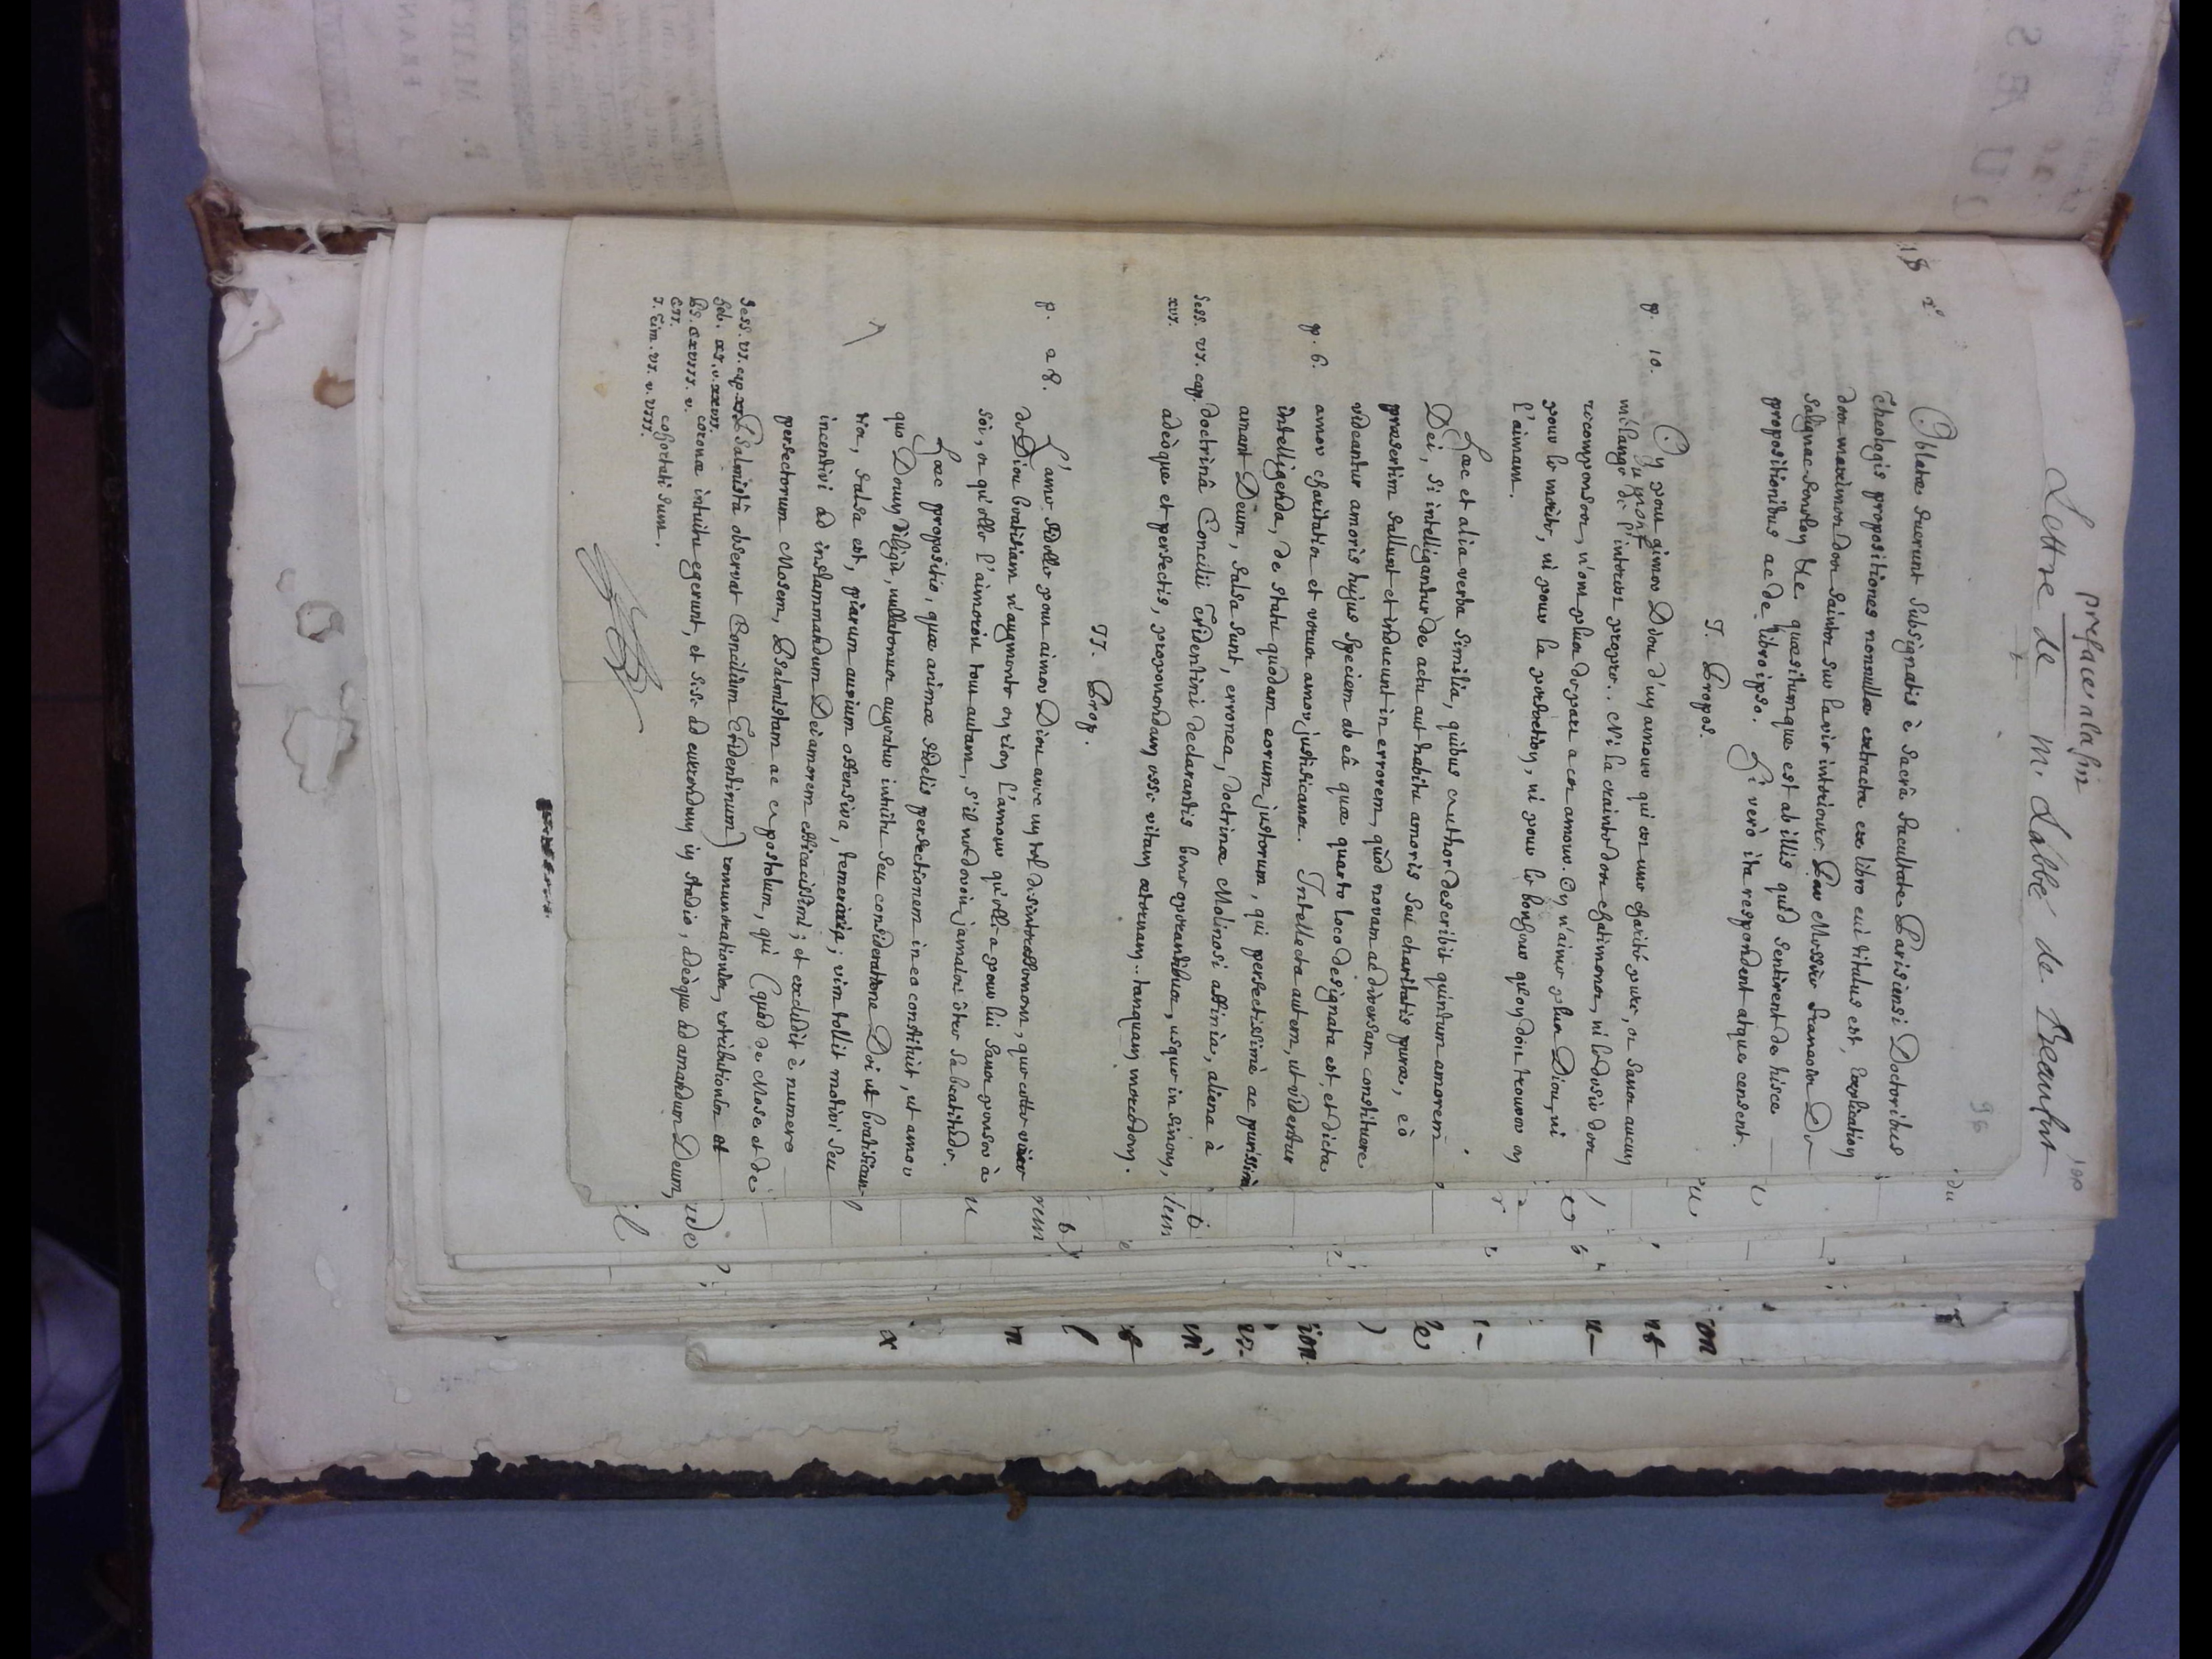 preface, alafin
Lettre de M. Labbé de Beaufort
190
96
18 r°
Oblatæ fuerunt subsignatis è Sacrâ facultate Parisiensi Doctoribus
Theologis propositiones nonnullæ extractæ ex libro cui titulus est, Explication
des maximes des Saints sur la vie interieure. Par Messire François De
Salignac-Fenelon &c quæsitumque est ab illis quid sentirent de hisce
propositionibus ac de libro ipso. Hi verò ita respondent atque censent.
I. Propos.
p. 10. On peut aimer Dieu d'un amour qui est une charité pure, et sans aucun
mélange du motif de l'interest propre.. Ni la crainte des chatimens, ni le desir des
recompenses, n'ont plus de part a cet amour. On n'aime plus Dieu, ni
pour le merite, ni pour la perfection, ni pour le bonheur qu'on doit trouver en
l'aimant.
Hæc et alia verba similia, quibus author describit quintum amorem
Dei, si intelligantur de actu aut habitu amoris seu charitatis puræ, eò
præsertim fallunt et inducunt in errorem, quòd novam ac diversam constituere
videantur amoris hujus speciem ab eâ quæ quarto loco designata est, et dicta
p. 6. amor charitatis et verus amor justificans. Intellecta autem, ut videntur
intelligenda, de statu quodam eorum justorum, qui perfectissimè ac purissimè
amant Deum, falsa sunt, erronea, doctrinæ Molinosi affinia, aliena à
Sess. VI. cap. XVI. doctrinâ Concilii Tridentini declarantis bene operantibus, usque in finem,
adeòque et perfectis, proponendam esse vitam æternam.. tanquam mercedem.
II. Prop.
p. 28. L'ame fidelle peut aimer Dieu avec un tel desinteressement, que cette vûe
de Dieu beatifiant n'augmente en rien l'amour qu'elle a pour lui sans penser à
soi, et qu'elle l'aimeroit tout autant, s'il ne devoit jamais être sa beatitude.
Hæc propositio, quæ animæ fidelis perfectionem in eo constituit, ut amor
quo Deum diligit, nullatenus augeatur intuitu seu consideratione Dei ut beatifican-
tis, falsa est, piarum aurium offensiva, temeraria; vim tollit motivi seu
incentivi ad inflammandum Dei amorem efficacissimi; et excludit è numero
perfectorum Mosem, Psalmistam ac Apostolum, qui (quod de Mose et de
Sess. VI. cap. XI. Psalmistâ observat Concilium Tridentinum) remunerationis, retributionis et
Heb. XI. v. XXVI.
Ps. CXVIII. v. CXII. coronæ intuitu egerunt, et sese ad currendum in stadio, adeòque ad amandum Deum,
I. Tim. VI. v. VIII. cohortati sunt.